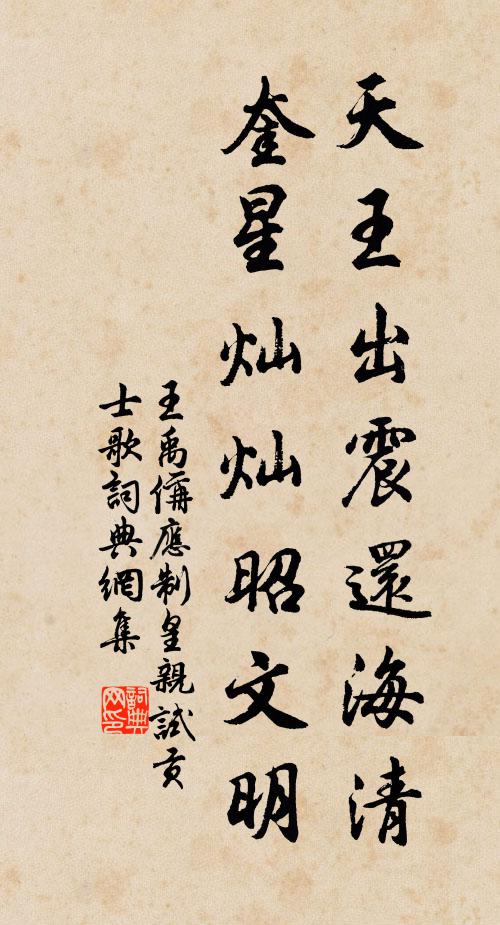 天王出震還海清
奎星灿灿昭文明
王禹偁應制皇親試貢
士歌詞典網集
詞典
网印